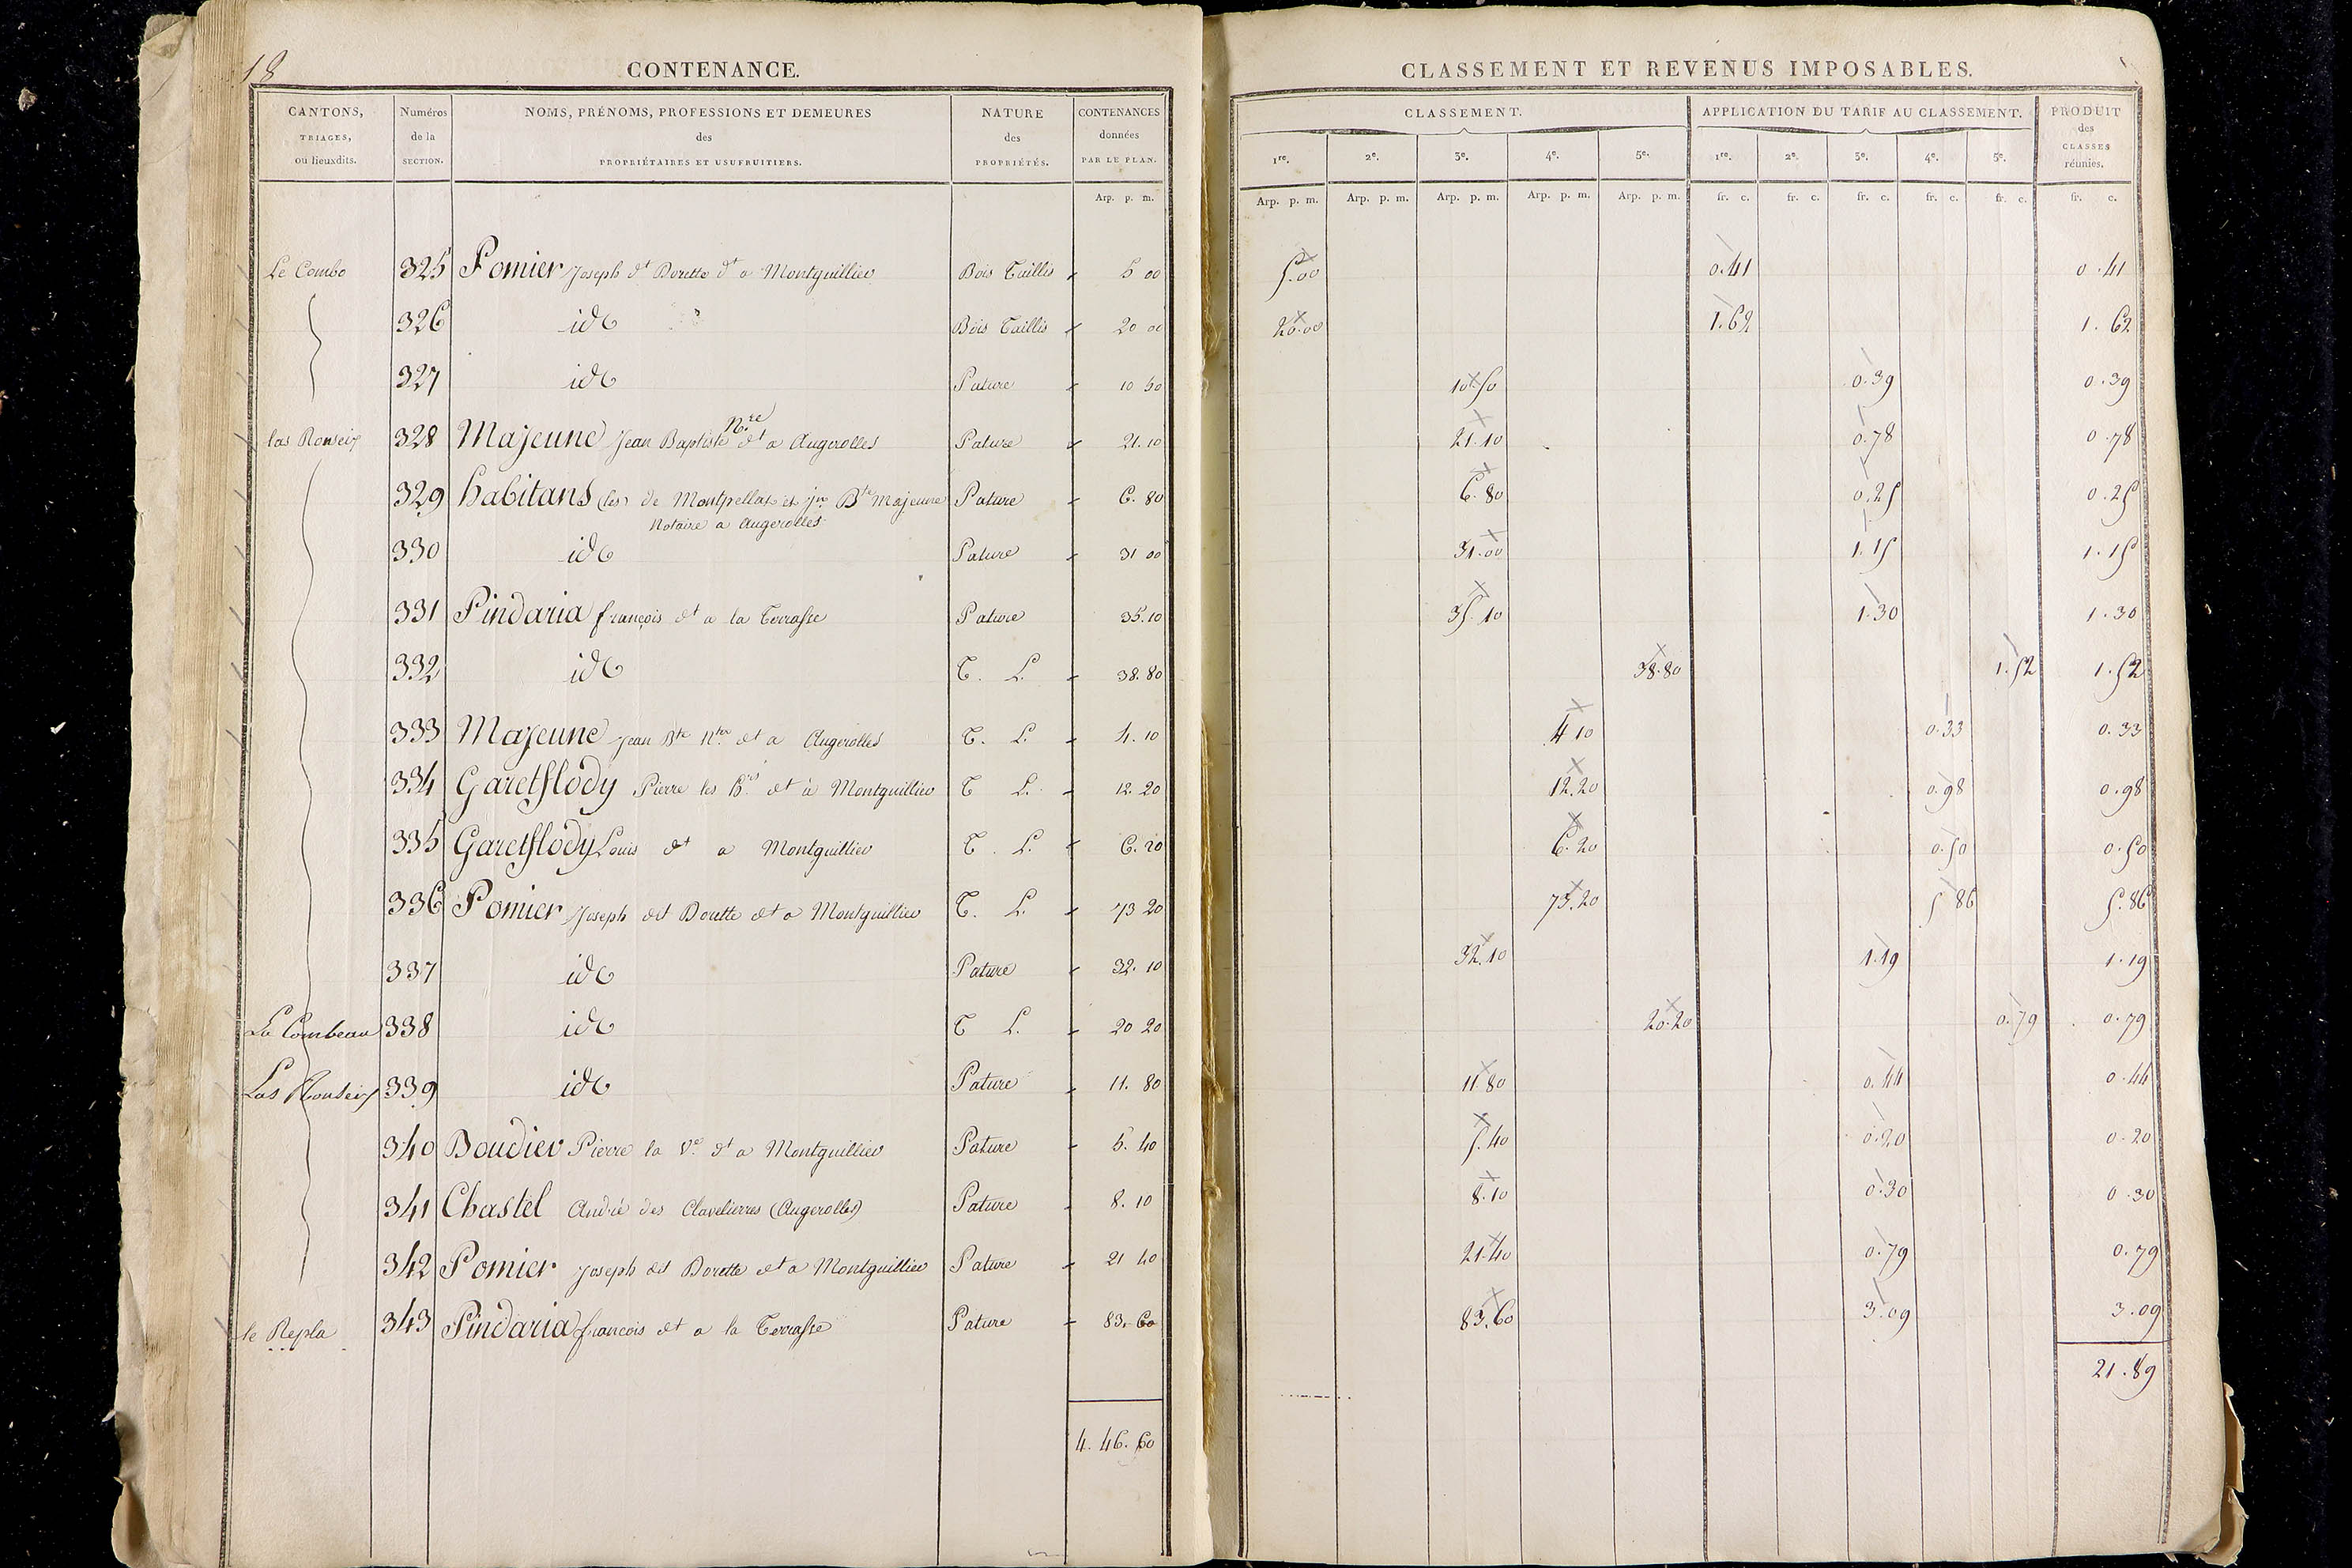 18
CONTENANCE.
CANTONS, TRIAGES, ou lieuxdits. | Numéros de la SECTION. | NOMS, PRÉNOMS, PROFESSIONS ET DEMEURES des PROPRIÉTAIRES ET USUFRUITIERS. | NATURE des PROPRIÉTÉS. | CONTENANCES données PAR LE PLAN.
Arp. p. m.
Le Combo 325 Pomier Joseph dt Dorette dt a Montguillier Bois Taillis 5 00
326 ide Bois Taillis 20 00
327 ide Pature 10 50
las Ronseix 328 Majeune Jean Baptiste Nre dt a Augerolles Pature 21.10
329 habitans (les) de Montpellat et Jn Bte Majeune Pature 6.80
Notaire a Augerolles
330 ide Pature 31 00
331 Pindaria françois dt a la Terrasse Pature 35.10
332 ide T. L. 38.80
333 Majeune Jean Bte Ntre dt a Augerolles T. L. 4.10
334 Garetflody Pierre les dt à Montguillier T L. 12.20
335 Garetflody Louis dt a Montguillier T. L. 6.20
336 Pomier Joseph dit Dorette dt a Montguillier T. L. 73 20
337 ide Pature 32.10
La Combeau 338 ide T L. 20 20
Las Ronseix 339 ide Pature 11.80
340 Boudier Pierre la Ve dt a Montguillier Pature 5.40
341 Chastel André des Clavelierres (Augerolles) Pature 8.10
342 Pomier Joseph dit Dorette dt a Montguillier Pature 21 40
le Repla 343 Pindaria francois dt a la Terrasse Pature 83.60
4.46.60
CLASSEMENT ET REVENUS IMPOSABLES.
CLASSEMENT. | APPLICATION DU TARIF AU CLASSEMENT. | PRODUIT des CLASSES réunies.
1re. 2e. 3e. 4e. 5e. 1re. 2e. 3e. 4e. 5e.
Arp. p. m. Arp. p. m. Arp. p. m. Arp. p. m. Arp. p. m. fr. c. fr. c. fr. c. fr. c. fr. c. fr. c.
5.00 0.41 0.41
20.00 1.62 1.62
10.50 0.39 0.39
21.10 0.78 0.78
6.80 0.25 0.25
31.00 1.15 1.15
35.10 1.30 1.30
38.80 1.52 1.52
4 10 0.33 0.33
12.20 0.98 0.98
6.20 0.50 0.50
73.20 5 86 5.86
32.10 1.19 1.19
20.20 0.79 0.79
11.80 0.44 0.44
5.40 0.20 0.20
8.10 0.30 0.30
21.40 0.79 0.79
83.60 3.09 3.09
21.89